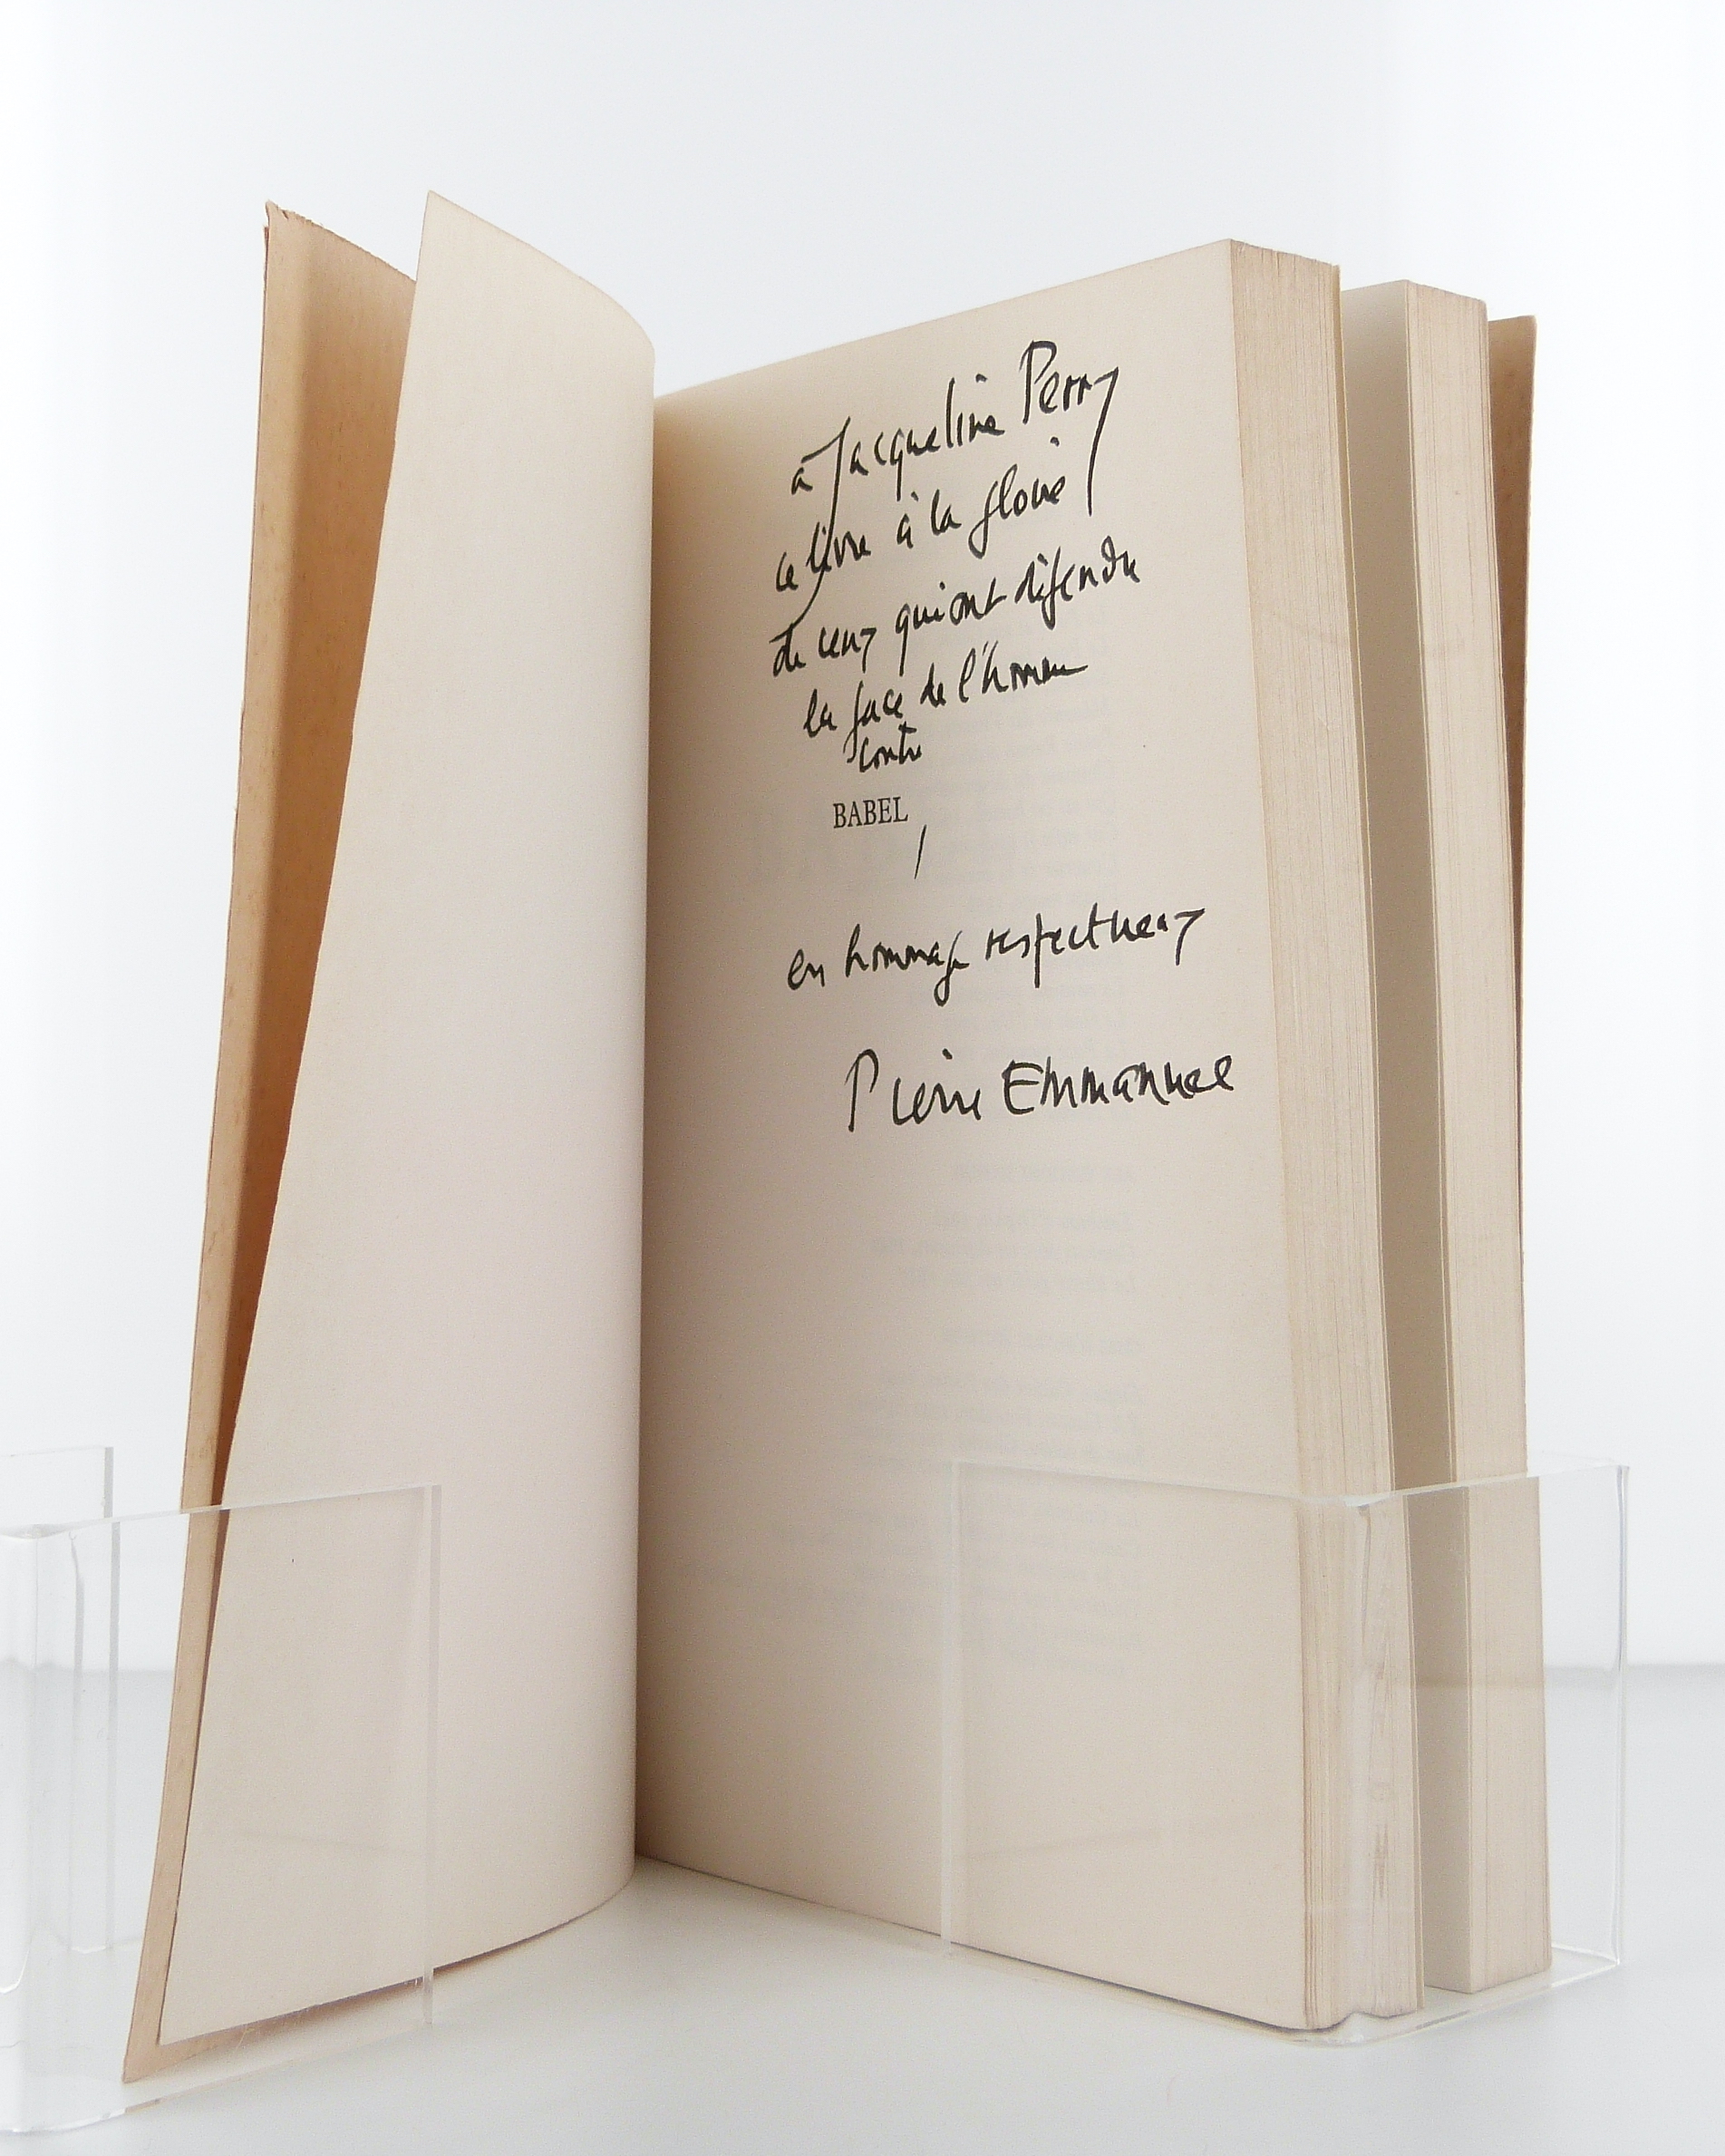 à Jacqueline Perry
ce livre à la gloire
de ceux qui ont défendu
la face de l'homme
contre
BABEL
en hommage respectueux
Pierre Emmanuel